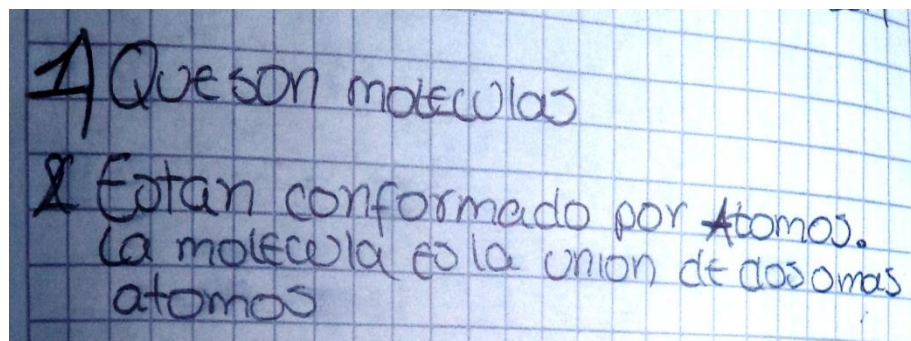 1) Que son moleculas
R Estan conformado por Atomos.
la molecula es la union de dos o mas
atomos